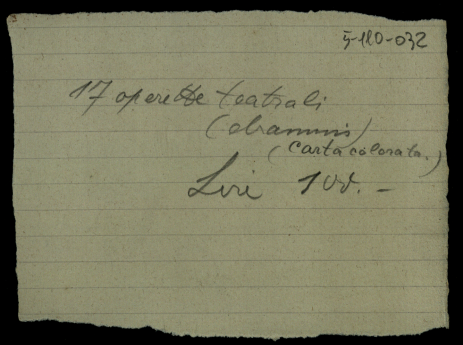 5-180-032
17 operette teatrali
(drammi)
(Carta colorata.)
Lire 100.-